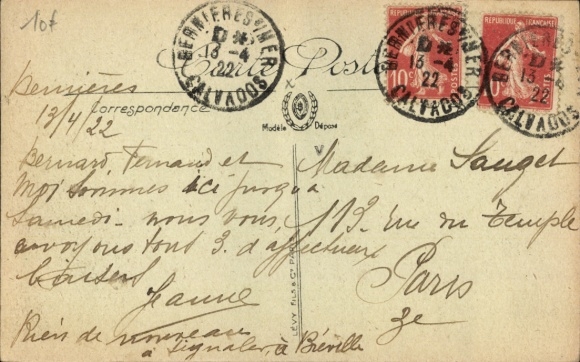 10f
BERNIERES S/MER
13-4
22
CALVADOS
BERNIERES S/MER
13-4
22
CALVADOS
13
22
CALVADOS
RÉPUBLIQUE FRANÇAISE
10c
POSTES
Carte Postale
Correspondance
Modèle Déposé
LÉVY FILS & Cie PARIS
Bernières
13/4/22
Bernard, Fernand et
Moi sommes ici jusqu'à
Samedi - nous vous
envoyons tous 3 d'affectueux
baisers
Jeanne
Rien de nouveau
à signaler, à Biéville
Madame Sauget
113 rue du Temple
Paris
3e